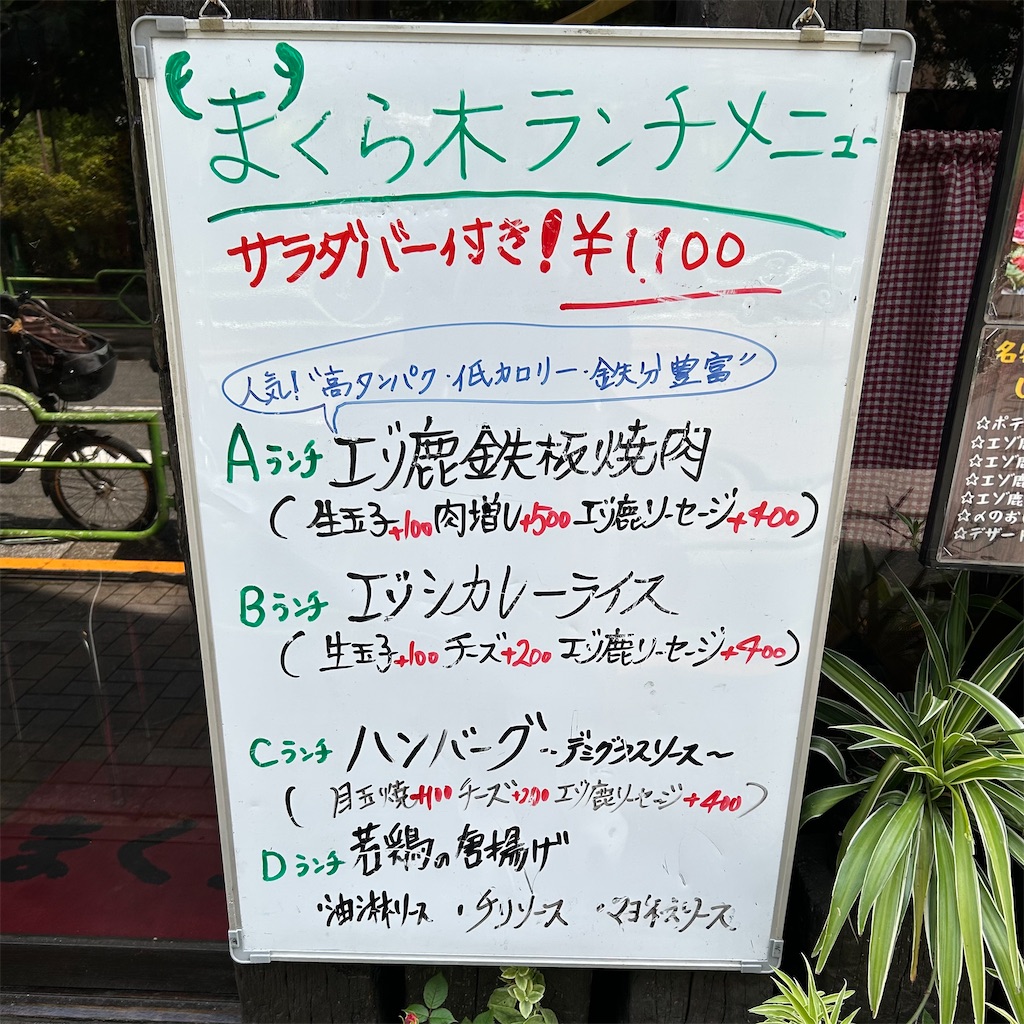 まくら木ランチメニュー
サラダバー付き!¥1,100
人気!"高タンパク・低カロリー・鉄分豊富"
Aランチ エゾ鹿鉄板焼肉
(生玉子+100 肉増し+500 エゾ鹿ソーセージ+400)
Bランチ エゾシカレーライス
(生玉子+100 チーズ+200 エゾ鹿ソーセージ+400)
Cランチ ハンバーグ~デミグラスソース~
(目玉焼+100 チーズ+200 エゾ鹿ソーセージ+400)
Dランチ 若鶏の唐揚げ
・油淋ソース ・チリソース ・マヨネーズソース
☆ポテ
☆エゾ
☆エゾ鹿
☆エゾ鹿
☆エゾ鹿
☆〆のお
☆デザート
まく